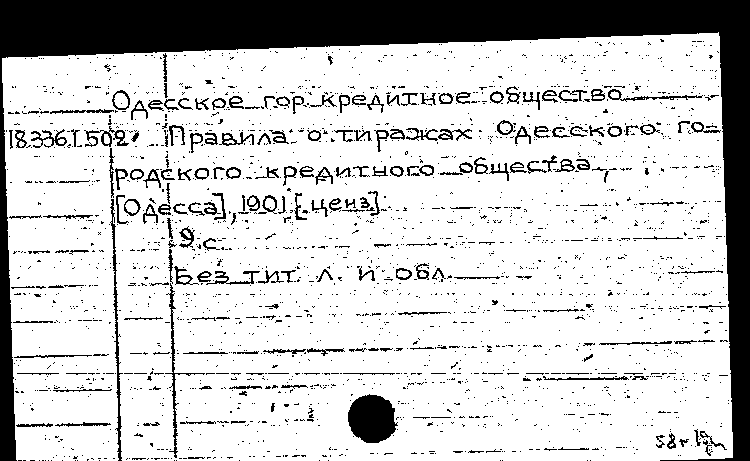 Одесское гор. кредитное общество
18.336.I.502. Правила о тиражах Одесского го-
родского кредитного общества,
[Одесса], 1901 [ценз].
9 с.
Без тит. л. и обл.